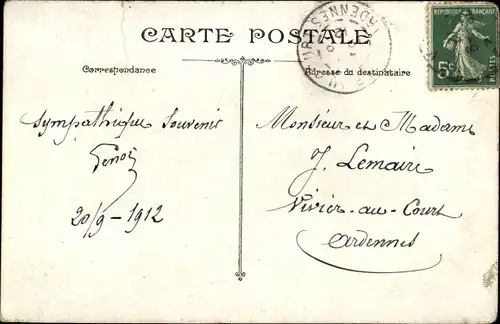 CARTE POSTALE
Correspondance
Adresse du destinataire
RÉPUBLIQUE FRANÇAISE
5c
POSTES
ARDENNES
Sympathique Souvenir
20/9-1912
Monsieur et Madame
J. Lemaire
Vivier-au-Court
Ardennes